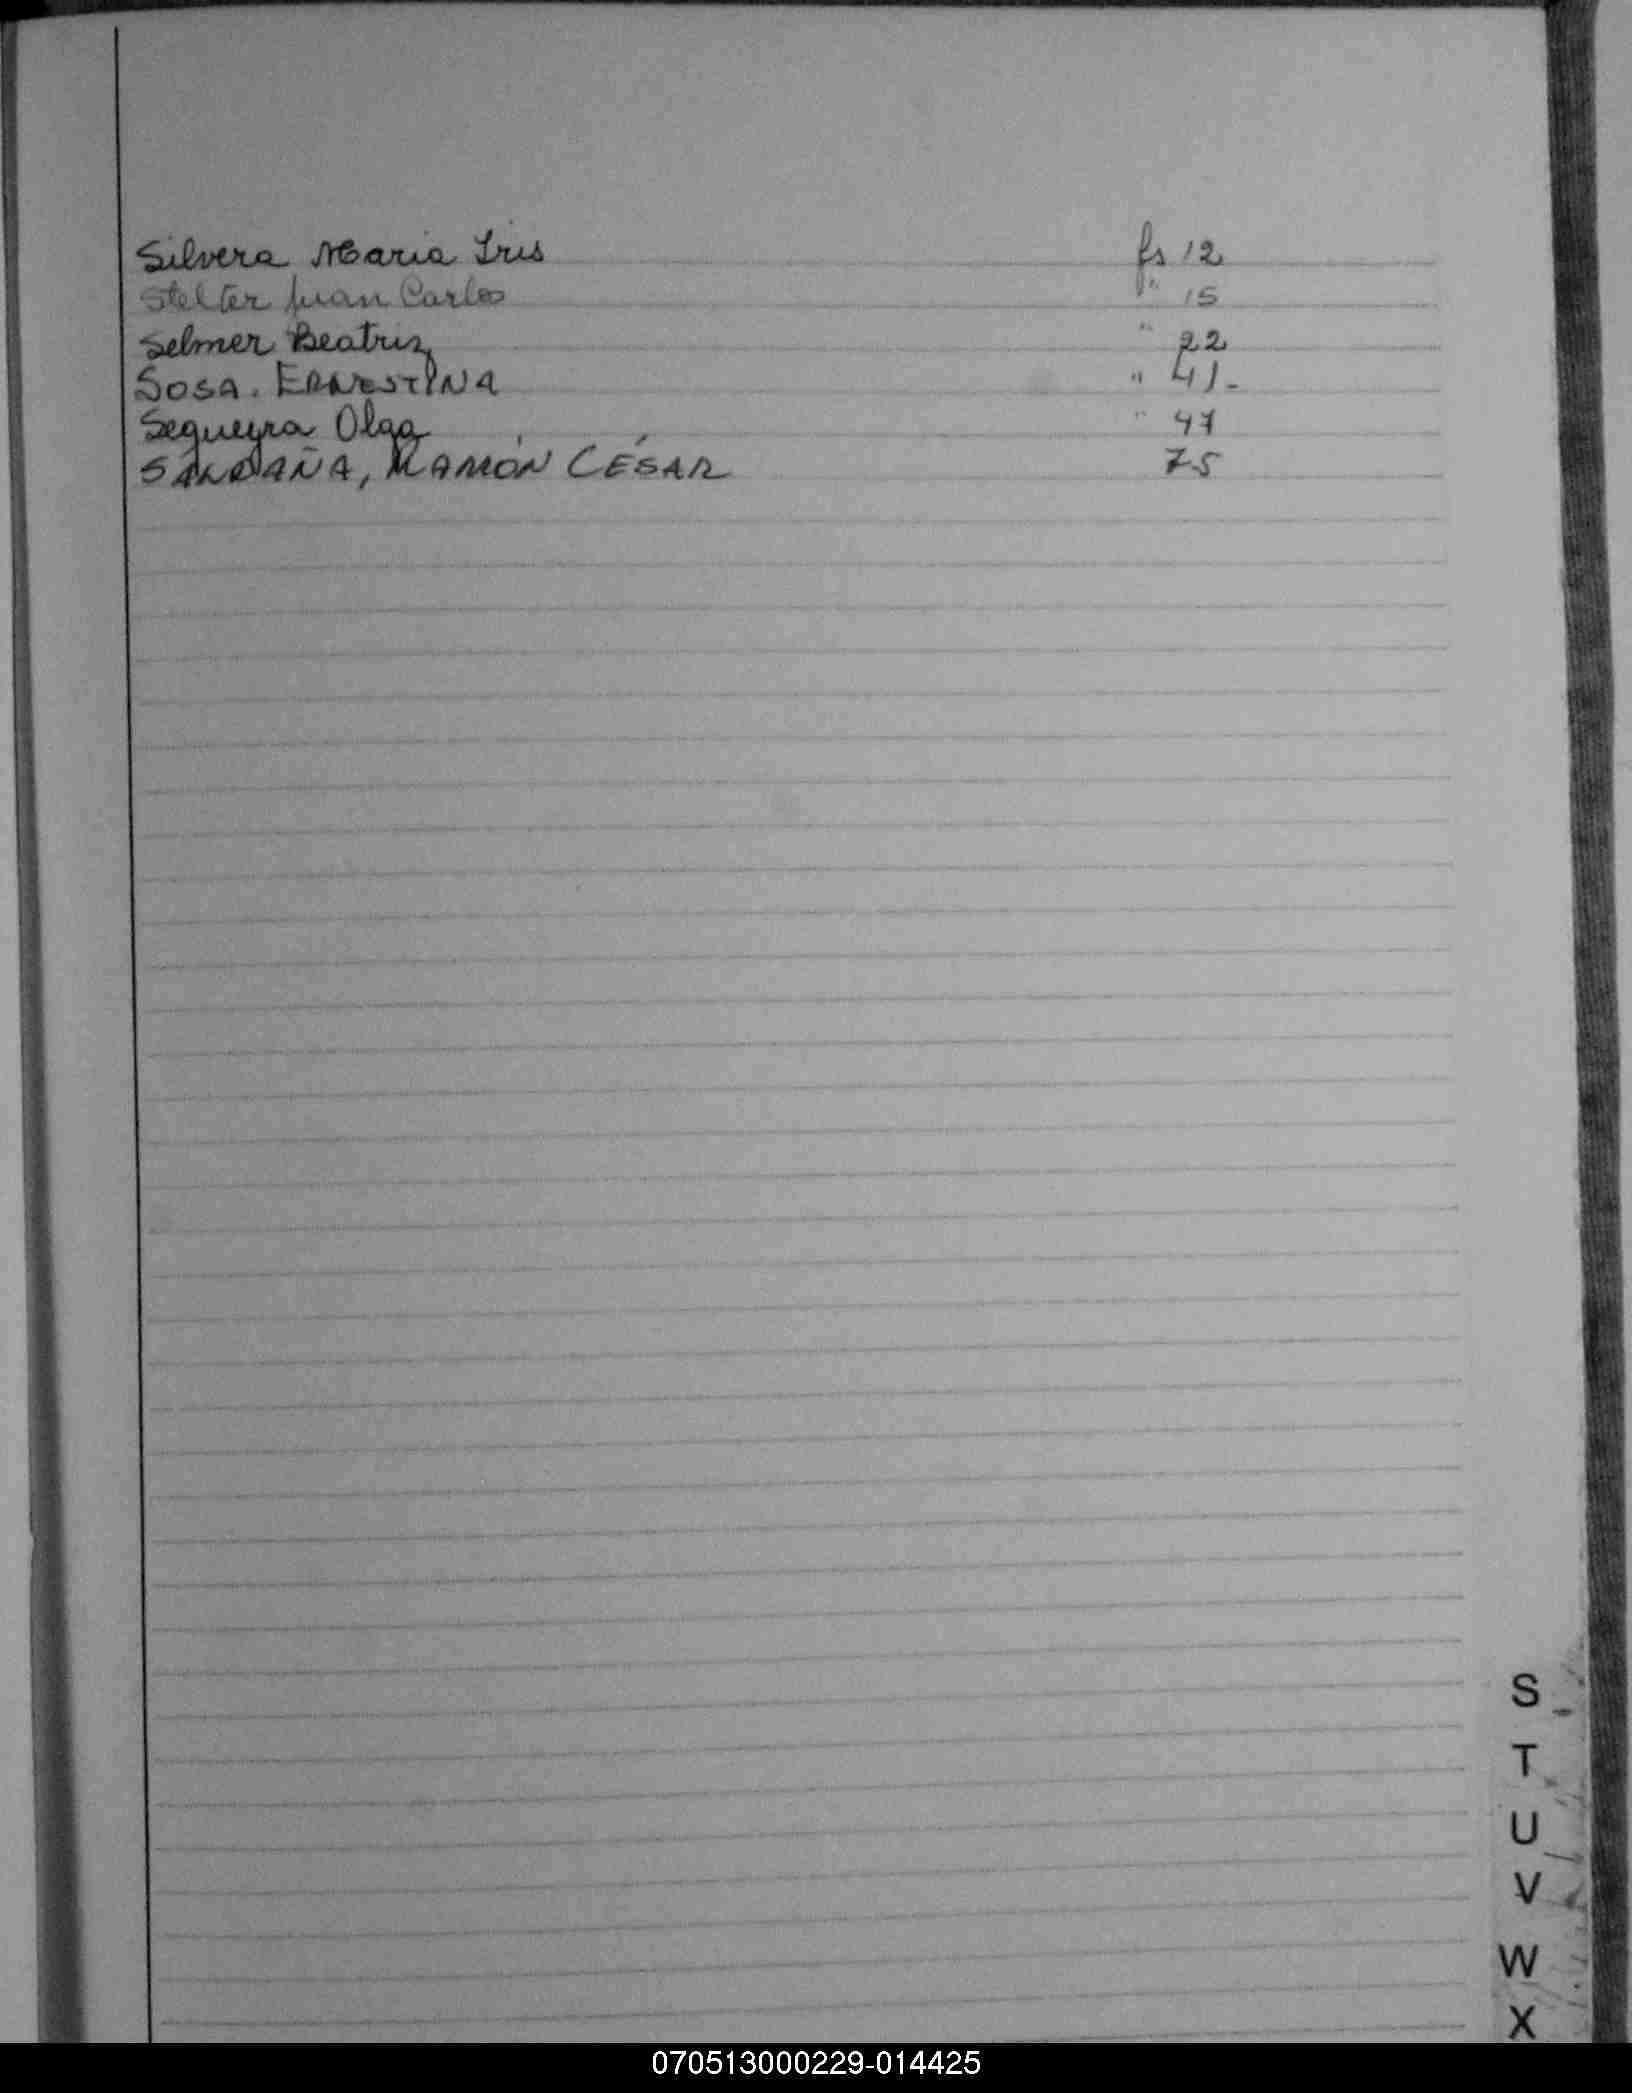 Silvera Maria Iris fs 12
Stelter Juan Carlos " 15
Selmer Beatriz " 22
SOSA. ERNESTINA " 41.-
Segueyra Olga " 47
SALDAÑA, RAMÓN CÉSAR 75
S
T
U
V
W
X
070513000229-014425